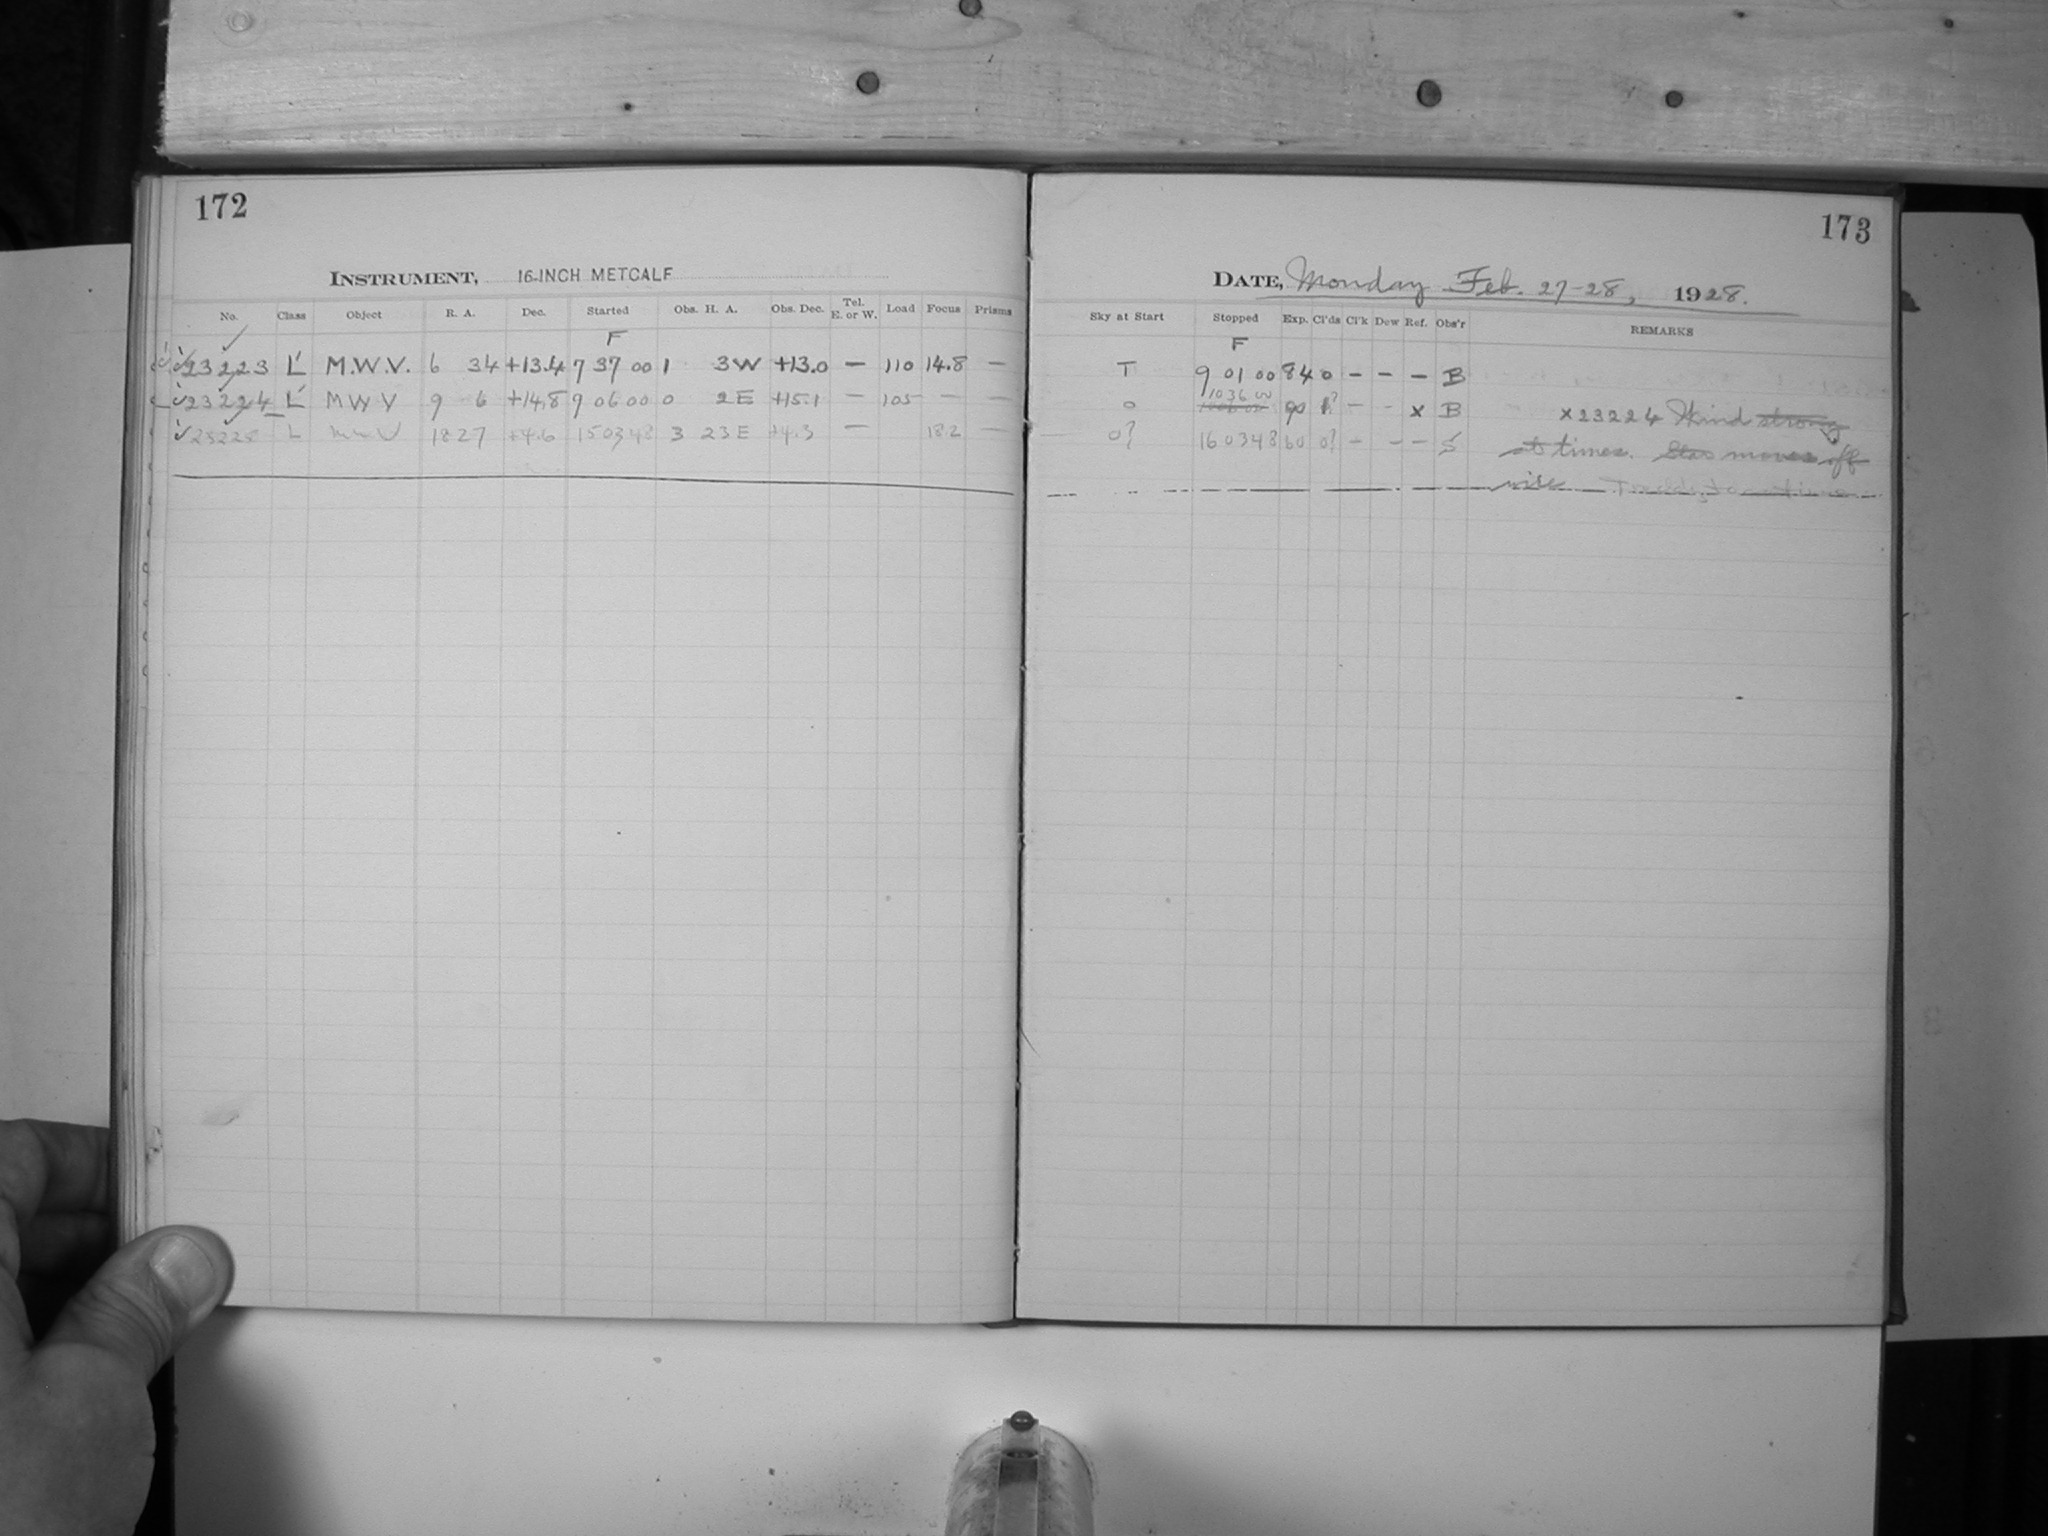 172
INSTRUMENT, 16-INCH METCALF
No. Class Object R. A. Dec. Started Obs. H. A. Obs. Dec. Tel. E. or W. Load Focus Prisms
F
23223 L M.W.V. 6 34 +13.4 7 37 00 1 3W +13.0 — 110 14.8 —
23224 L M W V 9 6 +14.8 9 06 00 0 2E +15.1 — 105 — —
23225 L M W V 18 27 +4.6 15 03 48 3 23E +4.3 — 18.2 —
173
DATE, Monday Feb. 27-28, 1928.
Sky at Start Stopped Exp. Cl'ds Cl'k Dew Ref. Obs'r REMARKS
F
T 9 01 00 84 0 — — — B
10 36 00
0 90 1? — - x B x23224 Wind strong
0? 16 03 48 60 0? — — — S at times. Star moves off
wire